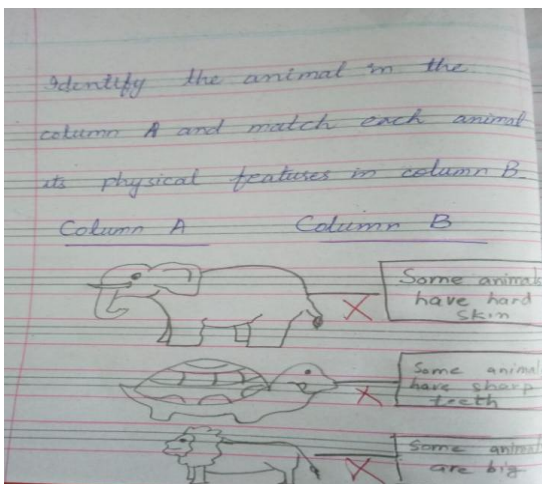 Identify the animal in the
column A and match each animal
its physical features in column B
Column A
Column B
Some animals
have hard
skin
Some animal
have sharp
teeth
Some animal
are big